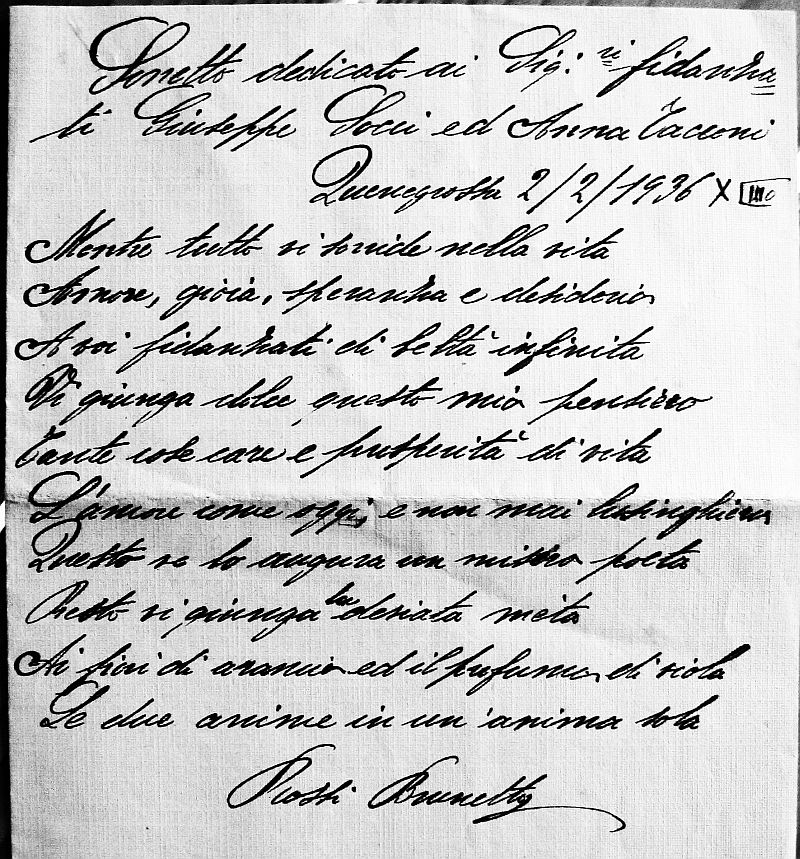 Sonetto dedicato ai Sig.ri fidanza
ti Giuseppe Socci ed Anna Tacconi
Quercegrossa 2/2/1936 XIIIo
Mentre tutto vi sorride nella vita
Amore, gioia, speranza e desiderio
A voi fidanzati di beltà infinita
Vi giunga dolce questo mio pensiero
Tante cose care e prosperità di vita
L'amore come oggi, e non mai lusinghiero
Questo ve lo augura un misero poeta
Presto vi giunga la desiata meta
Ai fiori di arancio ed il profumo di viola
Le due anime in un'anima sola
Rossi Brunetto